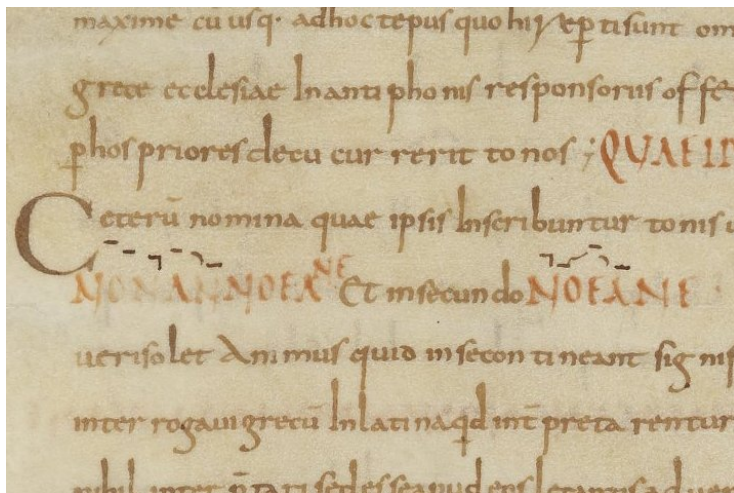 maxime cū usq· adhoc tēpus quo hi rep̄ti sunt om
grece ecclesiae In antiphonis responsoriis offe
p̄ hos priores decu cur rerit tonos ; QUAE
Ceterū nomina quae ipsis Inscribuntur tonis u
NONANNOEANE Et in secundo NOEANE
veri solet Animus quid in se contineant signis
interrogavi grecū In latina qd int̄pretarentur
nihil